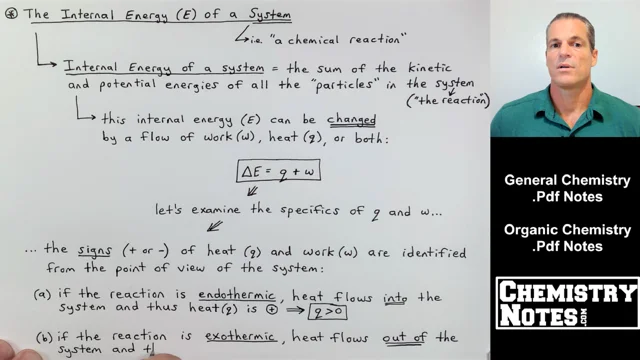 ⊛ The Internal Energy (E) of a System
i.e. "a chemical reaction"
Internal Energy of a system = the sum of the kinetic
and potential energies of all the "particles" in the system
("the reaction")
this internal energy (E) can be changed
by a flow of work (w), heat (q), or both:
ΔE = q + w
let's examine the specifics of q and w...
... the signs (+ or -) of heat (q) and work (w) are identified
from the point of view of the system:
(a) if the reaction is endothermic, heat flows into the
system and thus heat (q) is ⊕ ⟹ q > 0
(b) if the reaction is exothermic, heat flows out of the
system and t
General Chemistry
.Pdf Notes
Organic Chemistry
.Pdf Notes
CHEMISTRY
NOTES.COM